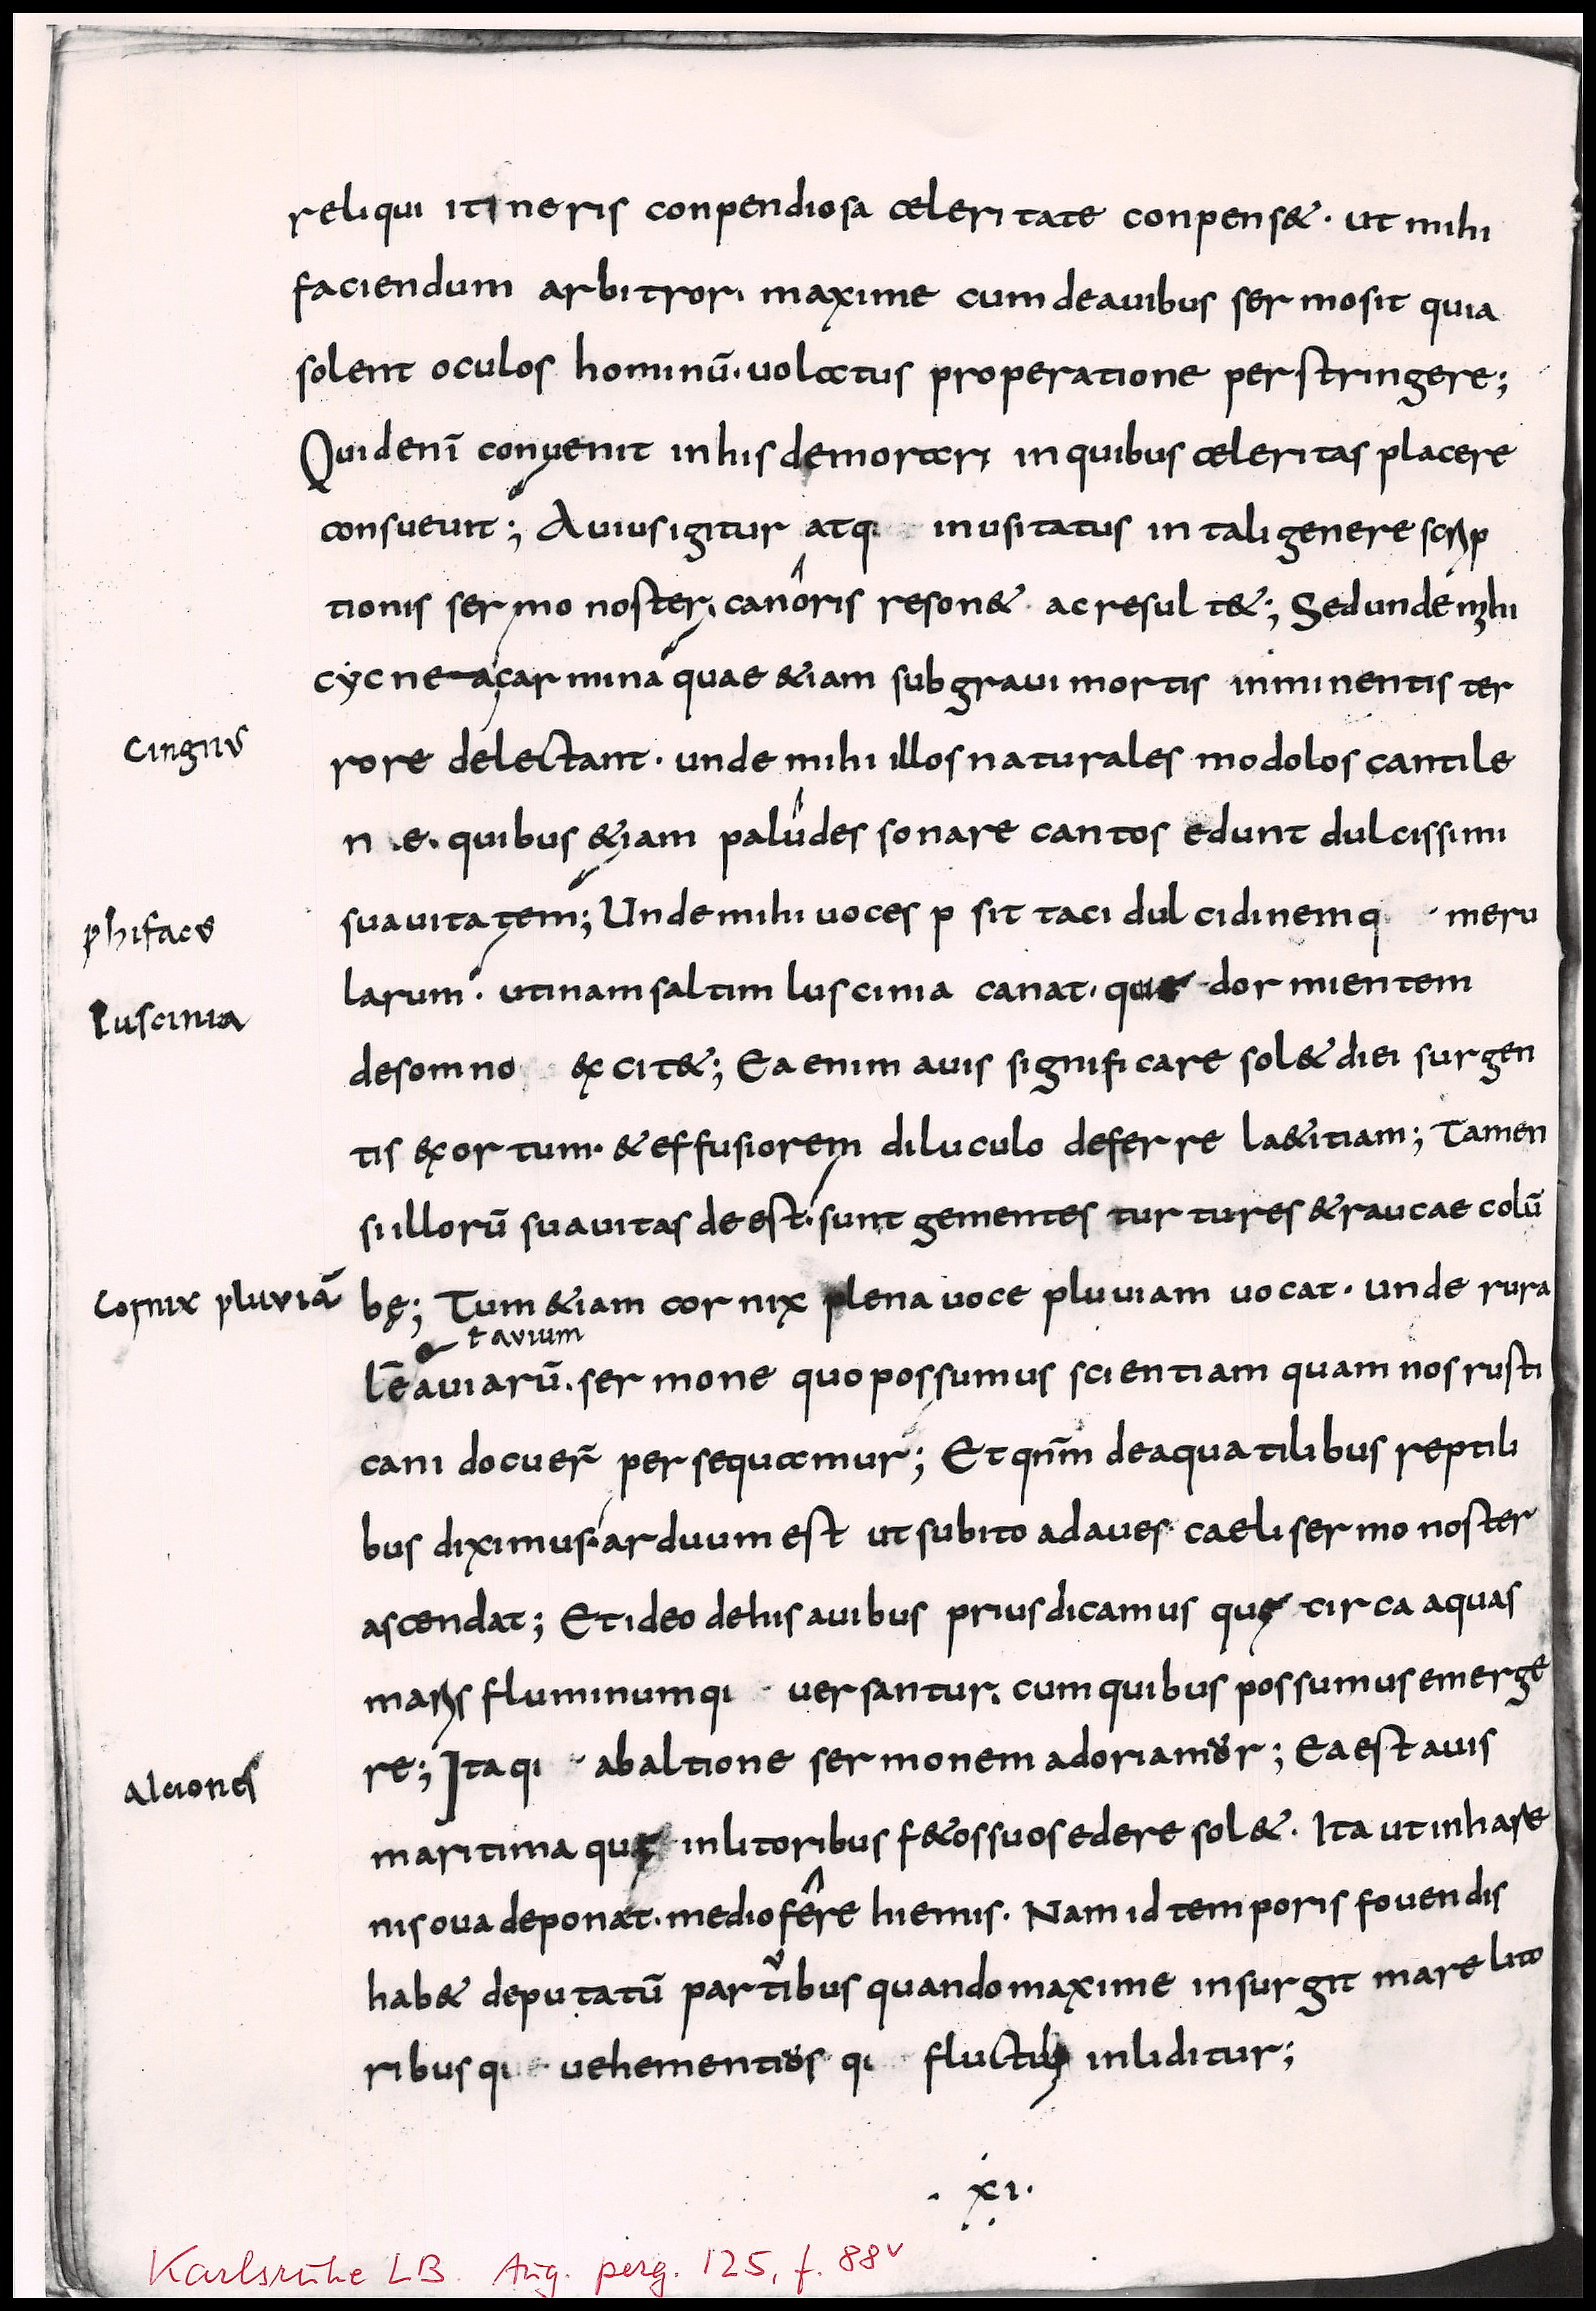 reliqui itineris conpendiosa celeritate conpens&. ut mihi
faciendum arbitror. maxime cum deavibus sermo sit quia
solent oculos hominū. volatus properatione perstringere;
Quid enī convenit in his demorari in quibus celeritas placere
consuevit; Avius igitur atqi inusitatus in tali genere scrip
tionis sermo noster, canoris reson& ac result&; Sed unde mihi
cycnea carmina quae &iam sub gravi mortis inminentis ter
Cingnus
rore delectant. unde mihi illos naturales modolos cantile
n e. quibus &iam paludes sonare cantos edunt dulcissimi
phitacus
suavitatem; Unde mihi voces p sittaci dulcidinemq meru
larum. utinam saltim luscinia canat. quę dormientem
Luscinia
de somno excit&; Ea enim avis significare sol& diei surgen
tis exortum. & effusiorem diluculo deferre la&itiam; Tamen
si illorū suavitas deest. sunt gementes turtures & raucae colū
Cornix pluviā
bę; Tum &iam cornix plena voce pluviam vocat. unde rura
ł avium
lē aviarū. sermone quo possumus scientiam quam nos rusti
cani docuer̄ persequamur; Et qnm̄ de aquatilibus reptili
bus diximus. arduum est ut subito ad aves caeli sermo noster
ascendat; Et ideo de his avibus prius dicamus quę circa aquas
maris fluminumqi versantur. cum quibus possumus emerge
re; Itaqi ab altione sermonem adoriamur; Ea est avis
Alciones
maritima quę in litoribus f&os suos edere sol&. Ita ut in hare
nis ova deponat. medio fere hiemis. Nam id temporis fovendis
hab& deputatū partibus quando maxime insurgit mare lito
ribusqi vehementius qi fluctibus inliditur;
. xi.
Karlsruhe LB. Aug. perg. 125, f. 88v